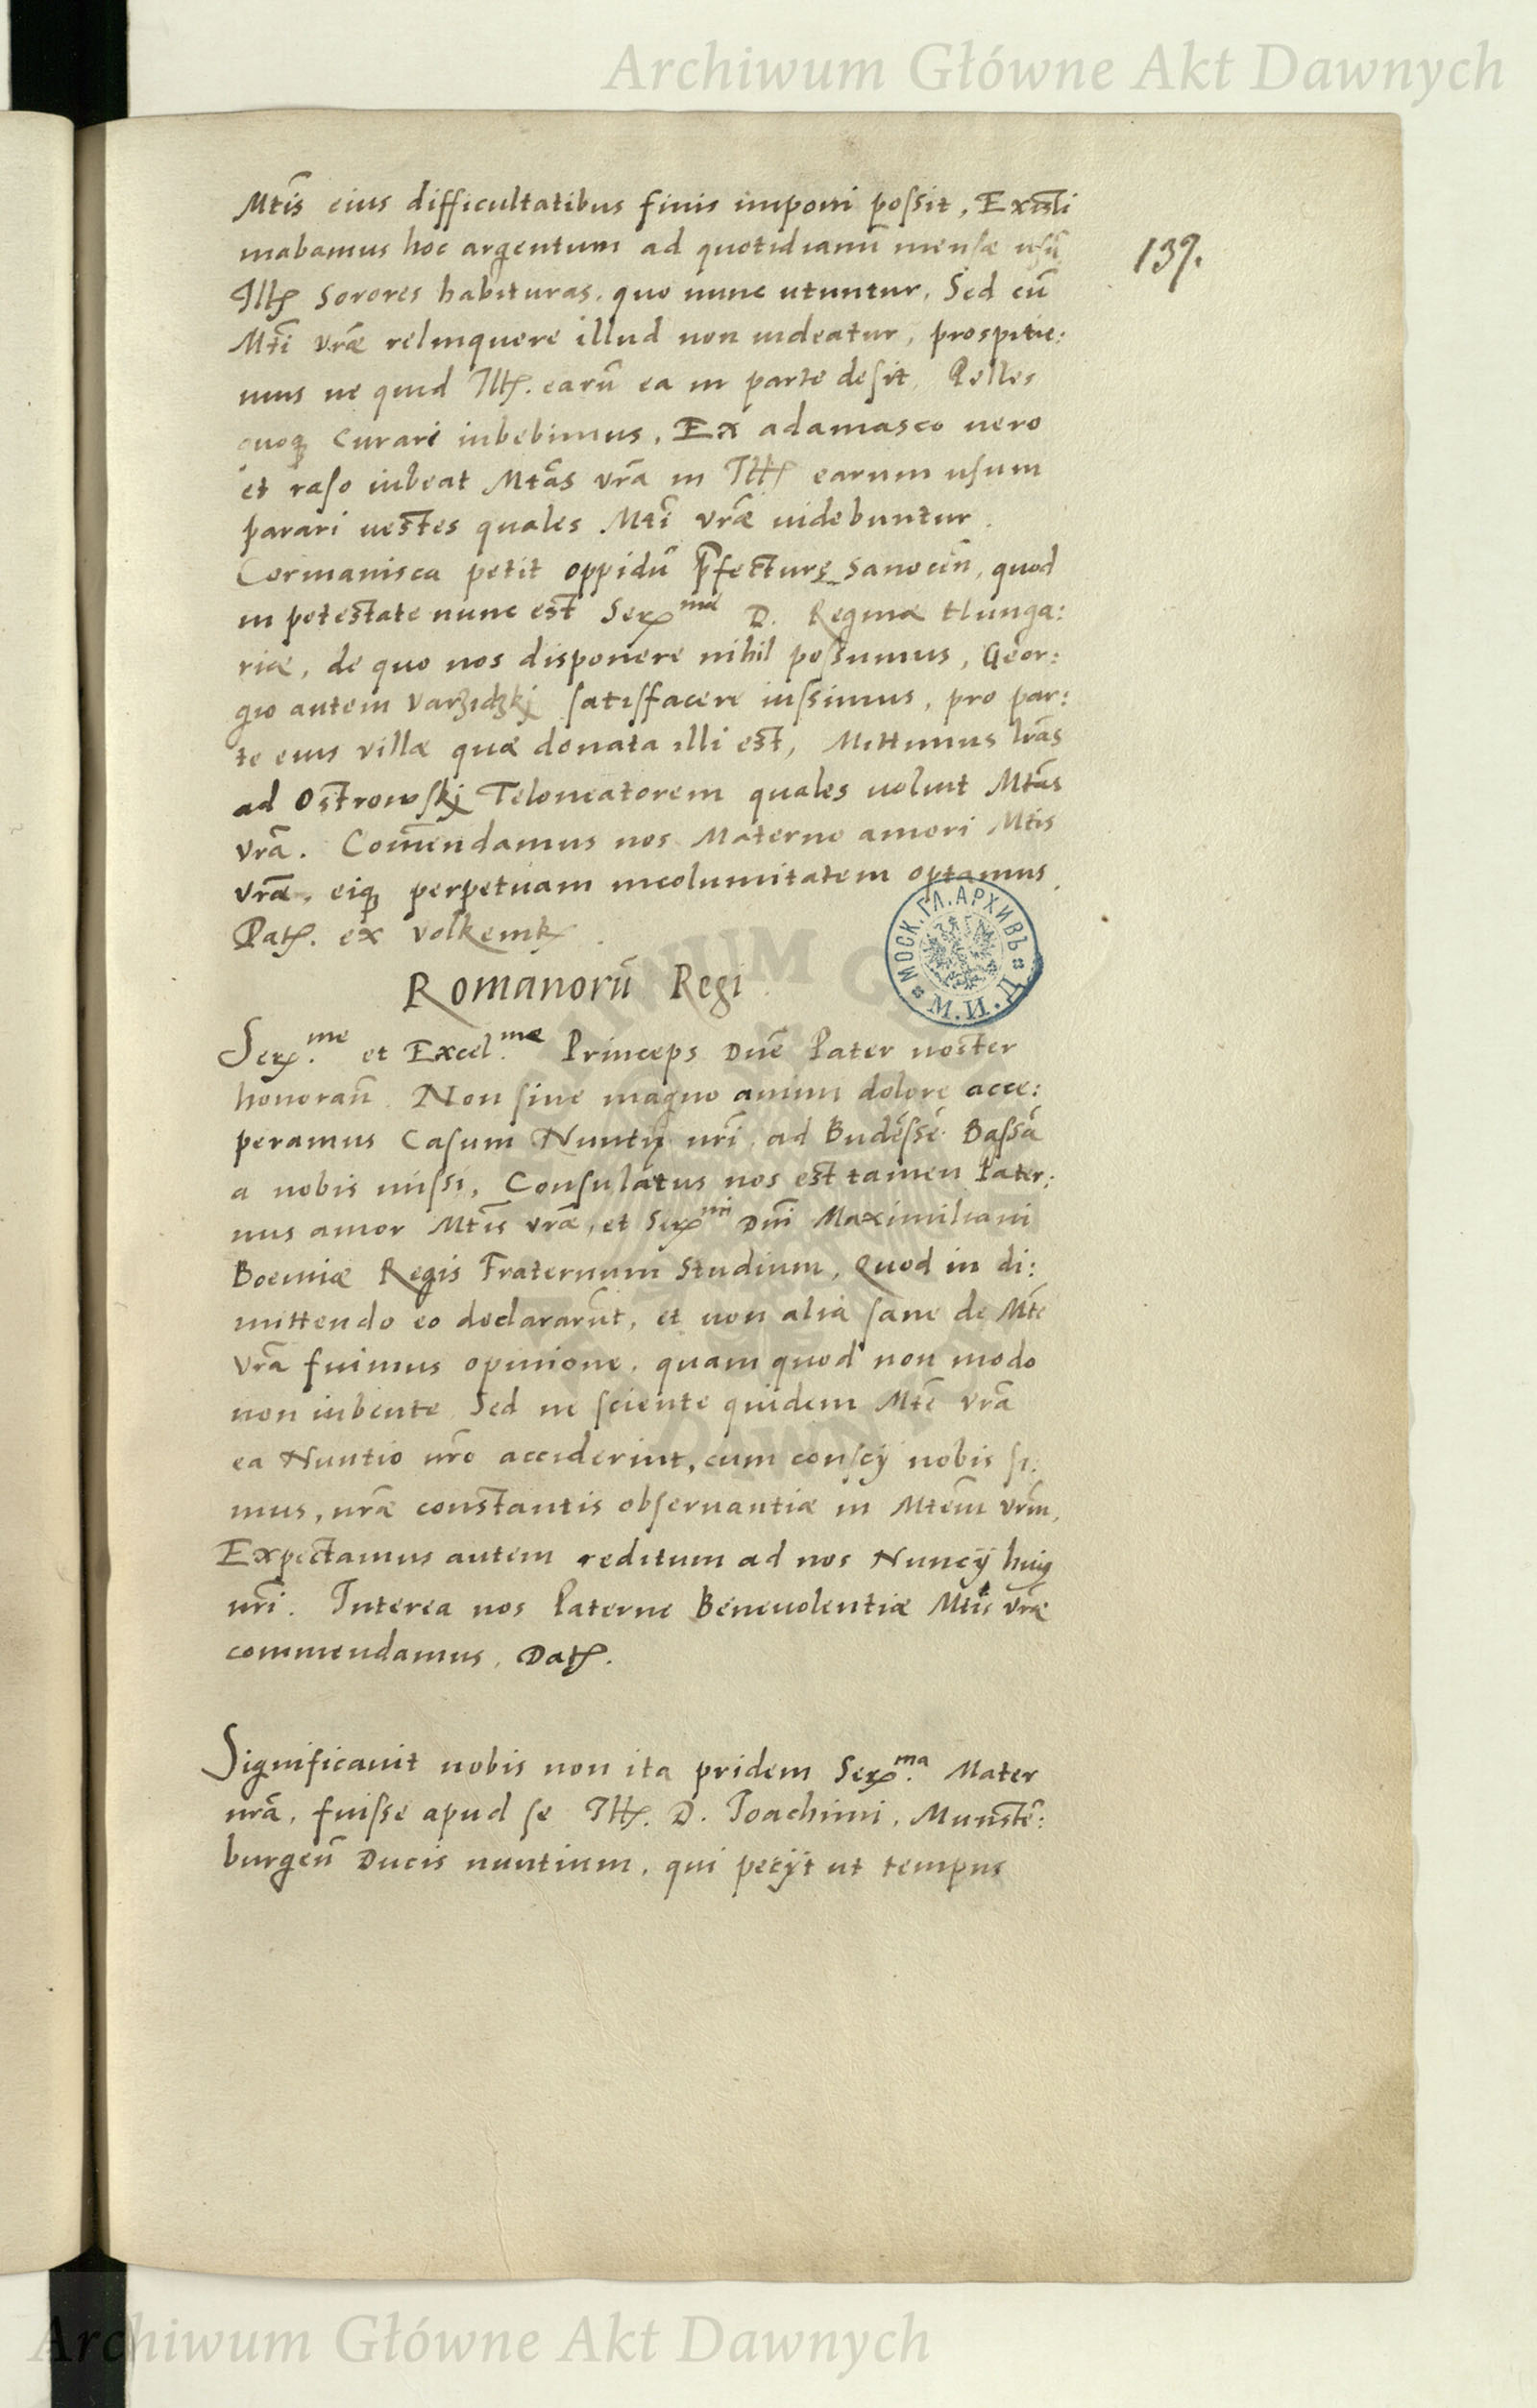 Archiwum Główne Akt Dawnych
137.
Mtīs eius difficultatibus finis imponi possit, Existi
mabamus hoc argentum ad quotidianū mensæ usū
Illꝭ Sorores habituras, quo nunc utuntur, Sed cū
Mtī vrāe relinquere illud non uideatur, prospicie:
mus ne quid Illꝭ. earū ea in parte desit, Pelles
quoqꝫ curari iubebimus, Ex adamasco uero
et raso iubeat Mtās vrā in Illꝭ earum usum
parari uestes quales Mtī vrāe uidebuntur.
Cormanisca petit oppidū p̄fecturę Sanocēn, quod
in potestate nunc est Serꝭmæ D. Reginæ Hunga:
riæ, de quo nos disponere nihil possumus, Geor:
gio autem Varzidzkj satisfacere iussimus, pro par:
te eius villæ quæ donata illi est, Mittimus lrās
ad Ostrowskj Teloneatorem quales uoluit Mtās
vrā. Com̄endamus nos Materno amori Mtīs
vrāe, eiqꝫ perpetuam incolumitatem optamus.
Datꝭ. ex Volkemikꝭ.
МОСК. ГЛ. АРХИВЪ М. И. Д.
Romanorū Regi
Serꝭ.me et Excel.me Princeps Dn̄e Pater noster
honorān̄. Non sine magno animi dolore acce:
peramus Casum Nuntij nr̄i ad Budēssē Bassā
a nobis missi, Consulatus nos est tamen Pater:
nus amor Mtīs vrāe, et Serꝭmi Dn̄i Maximiliani
Boemiæ Regis Fraternum Studium, Quod in di:
mittendo eo declararūt, et non alia sane de Mtē
vrā fuimus opinione, quam quod non modo
non iubente Sed ne sciente quidem Mtē vrā
ea Nuntio nr̄o acciderint, cum conscij nobis si:
mus, nrāe constantis obseruantiæ in Mtēm vrām,
Expectamus autem reditum ad nos Nuncij huiꝯ
nr̄i. Interea nos Paterne Beneuolentiæ Mtīs vrāe
commendamus. Datꝭ.
Significauit nobis non ita pridem Serꝭ.ma Mater
nrā, fuisse apud se Illꝭ. D. Joachimi, Munstē:
burgēn̄ Ducis nuntium, qui petijt ut tempus
Archiwum Główne Akt Dawnych